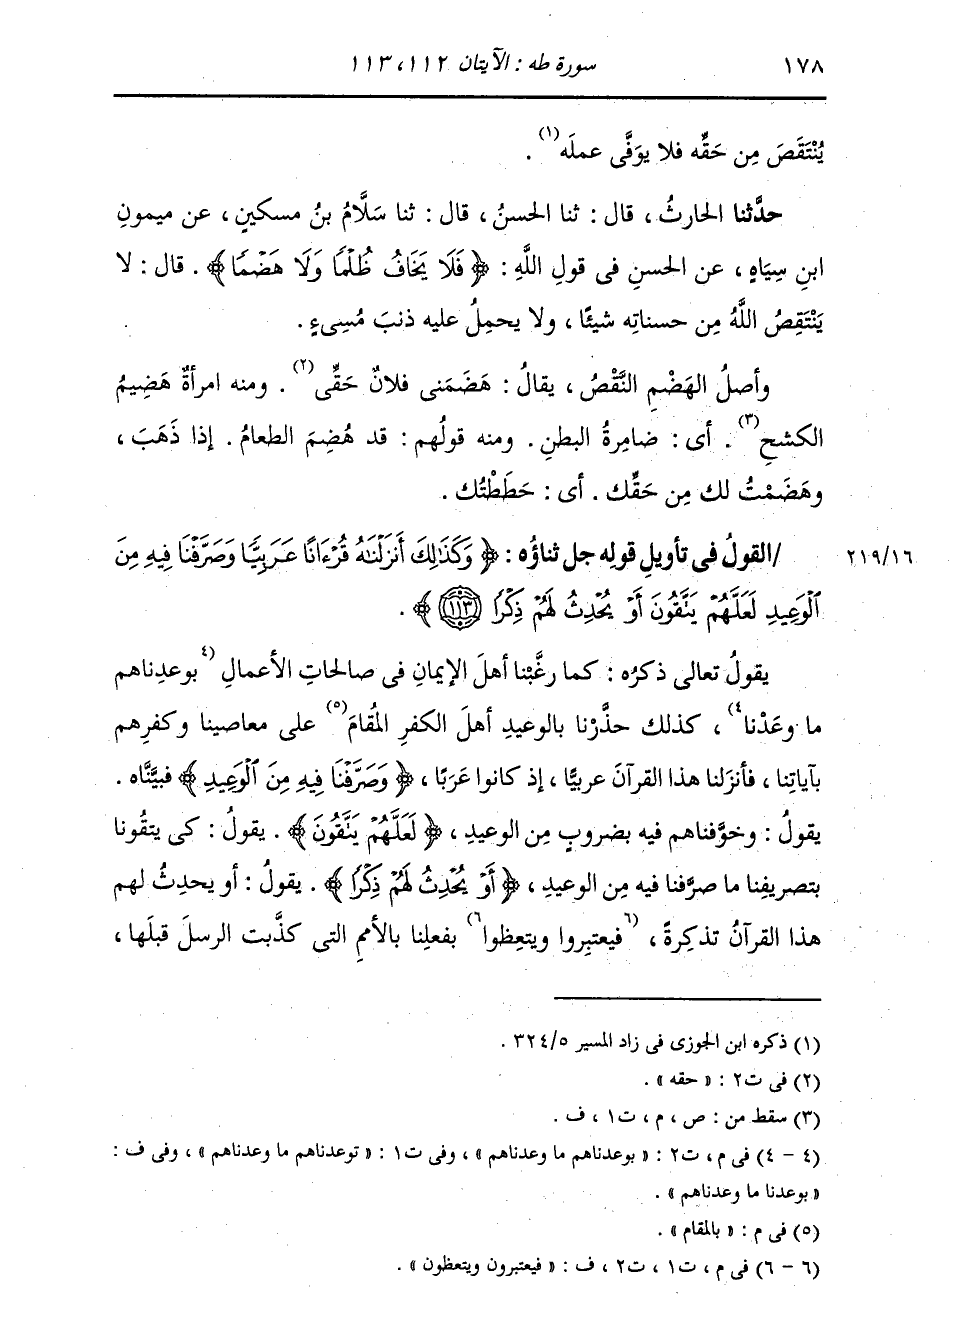 ١٧٨ سورة طه : الآيتان ١١٢، ١١٣
يُنْتَقَصَ مِن حَقِّه فلا يوَفَّى عملَه(١) .
حدَّثنا الحارثُ ، قال : ثنا الحسنُ ، قال : ثنا سَلَّامُ بنُ مسكينٍ ، عن ميمونِ
ابنِ سِيَاهٍ ، عن الحسنِ فى قولِ اللَّهِ : ﴿ فَلَا يَخَافُ ظُلْمًا وَلَا هَضْمًا ﴾ . قال : لا
يَنْتَقِصُ اللَّهُ مِن حسناتِه شيئًا ، ولا يحمِلُ عليه ذنبَ مُسِىءٍ .
وأصلُ الهَضْمِ النَّقْصُ ، يقالُ : هَضَمَنى فلانٌ حَقِّى(٢) . ومنه امرأةٌ هَضِيمُ
الكشحِ(٣) . أى : ضامِرةُ البطنِ . ومنه قولُهم : قد هُضِمَ الطعامُ . إذا ذَهَبَ ،
وهَضَمْتُ لك مِن حَقِّك . أى : حَطَطْتُك .
/القولُ فى تأويلِ قولِه جل ثناؤُه : ﴿ وَكَذَٰلِكَ أَنزَلْنَٰهُ قُرْءَانًا عَرَبِيًّا وَصَرَّفْنَا فِيهِ مِنَ ٢١٩/١٦
ٱلْوَعِيدِ لَعَلَّهُمْ يَنَّقُونَ أَوْ يُحْدِثُ لَهُمْ ذِكْرًا ﴿١١٣﴾ ﴾ .
يقولُ تعالى ذكرُه : كما رغَّبْنا أهلَ الإيمانِ فى صالحاتِ الأعمالِ (٤بوعدِناهم
ما وعَدْنا٤) ، كذلك حذَّرْنا بالوعيدِ أهلَ الكفرِ المُقامَ(٥) على معاصينا وكفرِهم
بآياتِنا ، فأنزَلنا هذا القرآنَ عربيًّا ، إذ كانوا عَرَبًا ، ﴿ وَصَرَّفْنَا فِيهِ مِنَ ٱلْوَعِيدِ ﴾ فبيَّنَّاه .
يقولُ : وخوَّفناهم فيه بضروبٍ مِن الوعيدِ ، ﴿ لَعَلَّهُمْ يَتَّقُونَ ﴾ . يقولُ : كى يتقُونا
بتصريفِنا ما صرَّفنا فيه مِن الوعيدِ ، ﴿ أَوْ يُحْدِثُ لَهُمْ ذِكْرًا ﴾ . يقولُ : أو يحدِثُ لهم
هذا القرآنُ تذكِرةً ، (٦فيعتبِروا ويتعِظوا٦) بفعلِنا بالأممِ التى كذَّبت الرسلَ قبلَها ،
(١) ذكره ابن الجوزى فى زاد المسير ٣٢٤/٥ .
(٢) فى ت٢ : « حقه » .
(٣) سقط من : ص ، م ، ت١ ، ف .
(٤ - ٤) فى م ، ت٢ : « بوعدناهم ما وعدناهم » ، وفى ت١ : « توعدناهم ما وعدناهم » ، وفى ف :
« بوعدنا ما وعدناهم » .
(٥) فى م : « بالمقام » .
(٦ - ٦) فى م ، ت١ ، ت٢ ، ف : « فيعتبرون ويتعظون » .